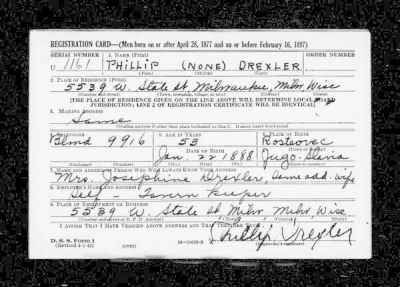 REGISTRATION CARD—(Men born on or after April 28, 1877 and on or before February 16, 1897)
SERIAL NUMBER 1. NAME (Print) ORDER NUMBER
U 1161 PHILLIP (NONE) DREXLER
(First) (Middle) (Last)
2. PLACE OF RESIDENCE (Print)
5539 W. State St Milwaukee, Milw Wisc
(Number and street) (Town, township, village, or city) (County) (State)
[THE PLACE OF RESIDENCE GIVEN ON THE LINE ABOVE WILL DETERMINE LOCAL BOARD
JURISDICTION; LINE 2 OF REGISTRATION CERTIFICATE WILL BE IDENTICAL]
3. MAILING ADDRESS
Same
(Mailing address if other than place indicated on line 2. If same insert word same)
4. TELEPHONE 5. AGE IN YEARS 6. PLACE OF BIRTH
Blmd 9916 53
DATE OF BIRTH (Town or county)
Jan. 22 1888 Jugo-Slavia
(Exchange) (Number) (Mo.) (Day) (Yr.) (State or country)
7. NAME AND ADDRESS OF PERSON WHO WILL ALWAYS KNOW YOUR ADDRESS
Mrs. Josephine Drexler, Same add. wife
8. EMPLOYER'S NAME AND ADDRESS
Self – Tavern Keeper
9. PLACE OF EMPLOYMENT OR BUSINESS
5539 W. State St Milw Milw Wisc.
(Number and street or R. F. D. number) (Town) (County) (State)
I AFFIRM THAT I HAVE VERIFIED ABOVE ANSWERS AND THAT THEY ARE TRUE.
D. S. S. Form 1
(Revised 4-1-42) (over) Phillip Drexler
(Registrant's signature)